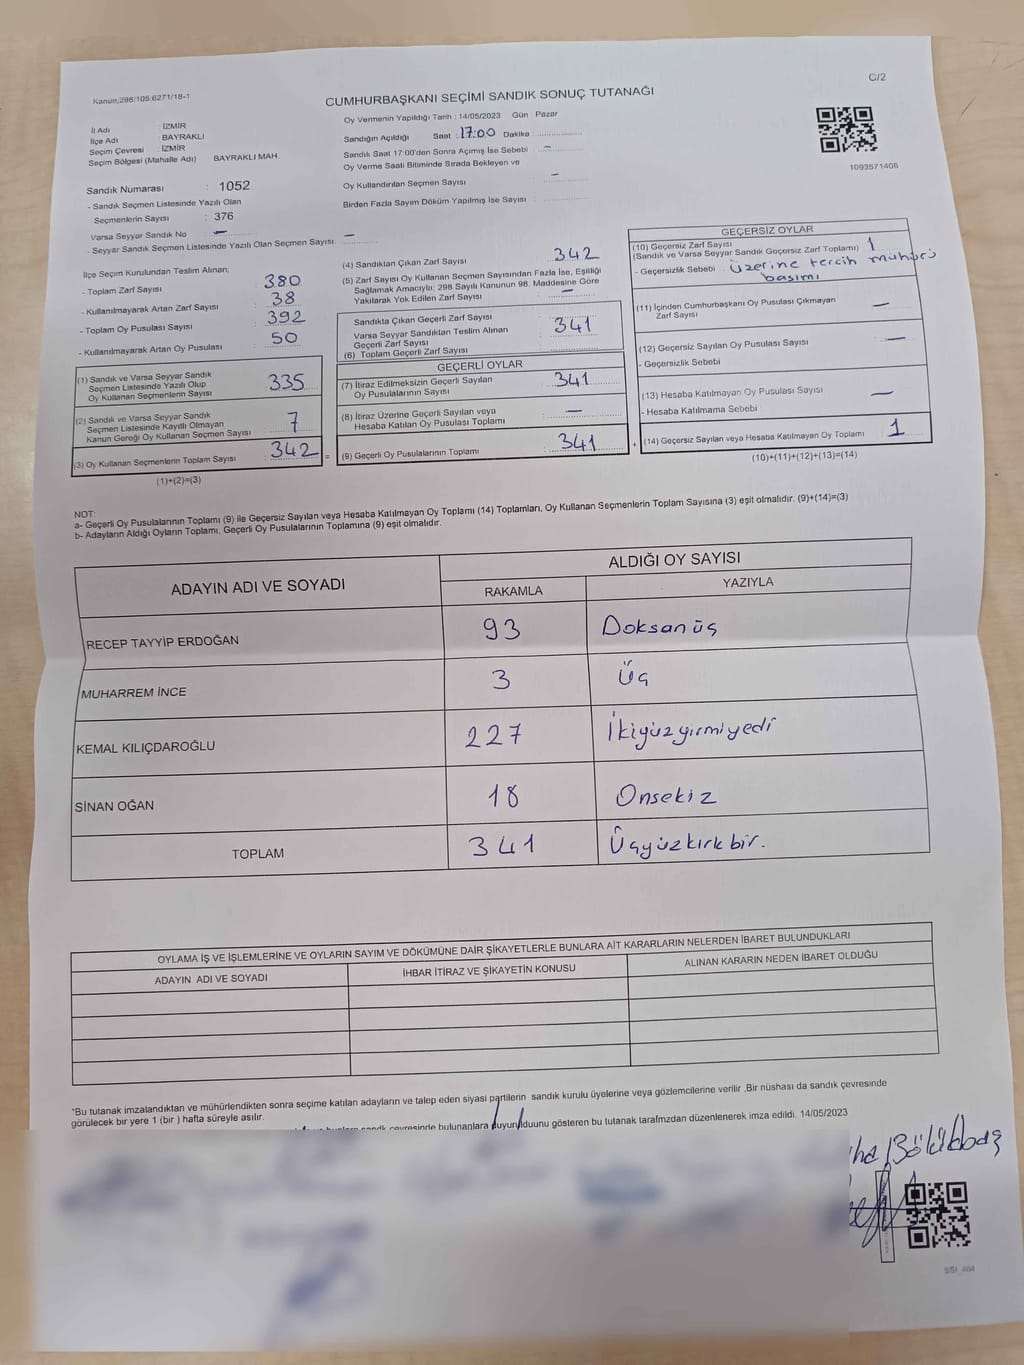 Kanun;298/105;6271/18-1
C/2
CUMHURBAŞKANI SEÇİMİ SANDIK SONUÇ TUTANAĞI
İl Adı : İZMİR
İlçe Adı : BAYRAKLI
Seçim Çevresi : İZMİR
Seçim Bölgesi (Mahalle Adı) BAYRAKLI MAH.
Oy Vermenin Yapıldığı Tarih : 14/05/2023 Gün Pazar
Sandığın Açıldığı Saat : 17:00 Dakika :
Sandık Saat 17:00'den Sonra Açımış İse Sebebi : -
Oy Verme Saati Bitiminde Sırada Bekleyen ve
Oy Kullandırılan Seçmen Sayısı -
Birden Fazla Sayım Döküm Yapılmış İse Sayısı :
1093571406
Sandık Numarası : 1052
- Sandık Seçmen Listesinde Yazılı Olan
Seçmenlerin Sayısı : 376
Varsa Seyyar Sandık No -
- Seyyar Sandık Seçmen Listesinde Yazılı Olan Seçmen Sayısı: -
İlçe Seçim Kurulundan Teslim Alınan;
- Toplam Zarf Sayısı : 380
- Kullanılmayarak Artan Zarf Sayısı : 38
- Toplam Oy Pusulası Sayısı : 392
- Kullanılmayarak Artan Oy Pusulası : 50
(1) Sandık ve Varsa Seyyar Sandık
Seçmen Listesinde Yazılı Olup
Oy Kullanan Seçmenlerin Sayısı : 335
(2) Sandık ve Varsa Seyyar Sandık
Seçmen Listesinde Kayıtlı Olmayan
Kanun Gereği Oy Kullanan Seçmen Sayısı : 7
(3) Oy Kullanan Seçmenlerin Toplam Sayısı : 342 =
(1)+(2)=(3)
(4) Sandıktan Çıkan Zarf Sayısı : 342
(5) Zarf Sayısı Oy Kullanan Seçmen Sayısından Fazla İse, Eşitliği
Sağlamak Amacıyla; 298 Sayılı Kanunun 98. Maddesine Göre
Yakılarak Yok Edilen Zarf Sayısı : -
Sandıkta Çıkan Geçerli Zarf Sayısı : 341
Varsa Seyyar Sandıktan Teslim Alınan
Geçerli Zarf Sayısı
(6) Toplam Geçerli Zarf Sayısı
GEÇERLİ OYLAR
(7) İtiraz Edilmeksizin Geçerli Sayılan
Oy Pusulalarının Sayısı : 341
(8) İtiraz Üzerine Geçerli Sayılan veya
Hesaba Katılan Oy Pusulası Toplamı : -
(9) Geçerli Oy Pusulalarının Toplamı : 341 +
GEÇERSİZ OYLAR
(10) Geçersiz Zarf Sayısı
(Sandık ve Varsa Seyyar Sandık Geçersiz Zarf Toplamı) 1
- Geçersizlik Sebebi : Üzerine tercih mühürü
basımı
(11) İçinden Cumhurbaşkanı Oy Pusulası Çıkmayan
Zarf Sayısı -
(12) Geçersiz Sayılan Oy Pusulası Sayısı -
- Geçersizlik Sebebi :
(13) Hesaba Katılmayan Oy Pusulası Sayısı -
- Hesaba Katılmama Sebebi :
(14) Geçersiz Sayılan veya Hesaba Katılmayan Oy Toplamı : 1
(10)+(11)+(12)+(13)=(14)
NOT:
a- Geçerli Oy Pusulalarının Toplamı (9) ile Geçersiz Sayılan veya Hesaba Katılmayan Oy Toplamı (14) Toplamları, Oy Kullanan Seçmenlerin Toplam Sayısına (3) eşit olmalıdır. (9)+(14)=(3)
b- Adayların Aldığı Oyların Toplamı, Geçerli Oy Pusulalarının Toplamına (9) eşit olmalıdır.
ADAYIN ADI VE SOYADI ALDIĞI OY SAYISI
RAKAMLA YAZIYLA
RECEP TAYYİP ERDOĞAN 93 Doksanüç
MUHARREM İNCE 3 Üç
KEMAL KILIÇDAROĞLU 227 İkiyüzyirmiyedi
SİNAN OĞAN 18 Onsekiz
TOPLAM 341 Üçyüzkırkbir.
OYLAMA İŞ VE İŞLEMLERİNE VE OYLARIN SAYIM VE DÖKÜMÜNE DAİR ŞİKAYETLERLE BUNLARA AİT KARARLARIN NELERDEN İBARET BULUNDUKLARI
ADAYIN ADI VE SOYADI İHBAR İTİRAZ VE ŞİKAYETİN KONUSU ALINAN KARARIN NEDEN İBARET OLDUĞU
*Bu tutanak imzalandıktan ve mühürlendikten sonra seçime katılan adayların ve talep eden siyasi partilerin sandık kurulu üyelerine veya gözlemcilerine verilir .Bir nüshası da sandık çevresinde
görülecek bir yere 1 (bir ) hafta süreyle asılır.
sandık çevresinde bulunanlara duyurulduunu gösteren bu tutanak tarafımzdan düzenlenerek imza edildi. 14/05/2023